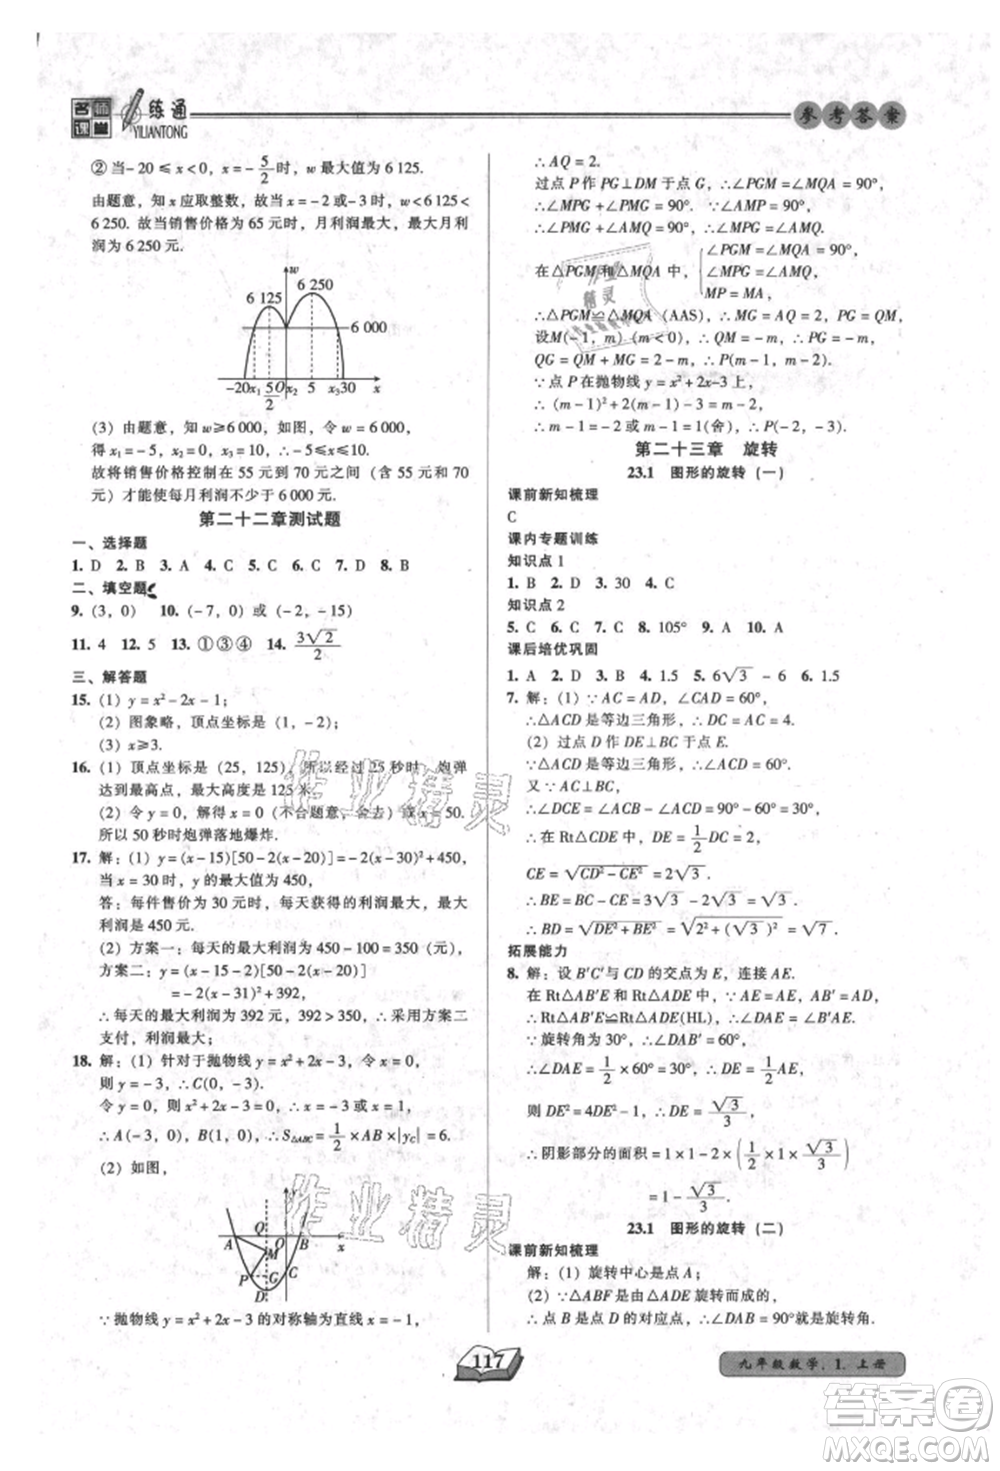 名师课堂 一练通 YILIANTONG
参考答案
② 当-20≤x<0,x=-5/2时,w最大值为6 125.
由题意,知x应取整数,故当x=-2或-3时,w<6 125<
6 250. 故当销售价格为65元时,月利润最大,最大月利润
为6 250元.
w
6 125 6 250
6 000
-20 x₁ 5/2 O x₂ 5 x₃ 30 x
(3) 由题意,知w≥6 000,如图,令w=6 000,
得x₁=-5,x₂=0,x₃=10,∴-5≤x≤10.
故将销售价格控制在55元到70元之间(含55元和70
元)才能使每月利润不少于6 000元.
第二十二章测试题
一、选择题
1. D 2. B 3. A 4. C 5. C 6. C 7. D 8. B
二、填空题
9. (3,0) 10. (-7,0) 或 (-2,-15)
11. 4 12. 5 13. ①③④ 14. 3√2/2
三、解答题
15. (1) y=x²-2x-1;
(2) 图象略,顶点坐标是(1,-2);
(3) x≥3.
16. (1) 顶点坐标是(25,125),所以经过25秒时,炮弹
达到最高点,最大高度是125米.
(2) 令y=0,解得x=0(不合题意,舍去)或x=50,
所以50秒时炮弹落地爆炸.
17. 解:(1) y=(x-15)[50-2(x-20)]=-2(x-30)²+450,
当x=30时,y的最大值为450,
答:每件售价为30元时,每天获得的利润最大,最大
利润是450元.
(2) 方案一:每天的最大利润为450-100=350(元),
方案二:y=(x-2-15)[50-2(x-20)]
=-2(x-31)²+392,
∴每天的最大利润是392元,392>350,∴采用方案二
支付,利润最大;
18. 解:(1) 针对于抛物线y=x²+2x-3,令x=0,
则y=-3,∴C(0,-3),
令y=0,则x²+2x-3=0,解得x=-3或x=1,
∴A(-3,0),B(1,0),∴S△ABC=1/2×AB×|yC|=6.
(2) 如图,
y
Q
A O B x
M
P
D C
∵抛物线y=x²+2x-3的对称轴为直线x=-1,
∴AQ=2.
过点P作PG⊥DM于点G,∴∠PGM=∠MQA=90°,
∴∠MPG+∠PMG=90°. ∵∠AMP=90°,
∴∠PMG+∠AMQ=90°,∴∠MPG=∠AMQ.
在△PGM和△MQA中,
∠PGM=∠MQA=90°,
∠MPG=∠AMQ,
MP=MA,
∴△PGM≌△MQA(AAS),∴MG=AQ=2,PG=QM,
设M(-1,m)(m<0),∴QM=-m,∴PG=-m,
QG=QM+MG=2-m,∴P(m-1,m-2),
∵点P在抛物线y=x²+2x-3上,
∴(m-1)²+2(m-1)-3=m-2,
∴m=-1或m=2(舍),∴M(-1,-1).
第二十三章 旋转
23.1 图形的旋转(一)
课前新知梳理
C
课内专题训练
知识点1
1. B 2. D 3. 30 4. C
知识点2
5. C 6. C 7. C 8. 105° 9. A 10. A
课后培优巩固
1. A 2. D 3. D 4. 1.5 5. 6√3-6 6. 1.5
7. 解:(1) ∵AC=AD,∠CAD=60°,
∴△ACD是等边三角形,∴DC=AC=4.
(2) 过点D作DE⊥BC于点E.
∵△ACD是等边三角形,∴∠ACD=60°,
又∵AC⊥BC,
∴∠DCE=∠ACB-∠ACD=90°-60°=30°,
∴在Rt△CDE中,DE=1/2DC=2,
CE=√(CD²-CE²)=2√3,
∴BE=BC-CE=3√3-2√3=√3,
∴BD=√(DE²+BE²)=√(2²+(√3)²)=√7.
拓展能力
8. 解:设B′C′与CD的交点为E,连接AE.
在Rt△AB′E和Rt△ADE中,∵AE=AE,AB′=AD,
∴Rt△AB′E≌Rt△ADE(HL),∴∠DAE=∠B′AE,
∵旋转角为30°,∴∠DAB′=60°,
∴∠DAE=1/2×60°=30°,∴DE=1/2AE,
则DE²=4DE²-1,∴DE=√3/3,
∴阴影部分的面积=1×1-2×(1/2×1×√3/3)
=1-√3/3.
23.1 图形的旋转(二)
课前新知梳理
解:(1) 旋转中心是点A;
(2) ∵△ABF是由△ADE旋转而成的,
∴点B是点D的对应点,∴∠DAB=90°
117
九年级数学.1.上册
作业精灵
作业精灵
作业精灵
答案圈
MXQE.COM